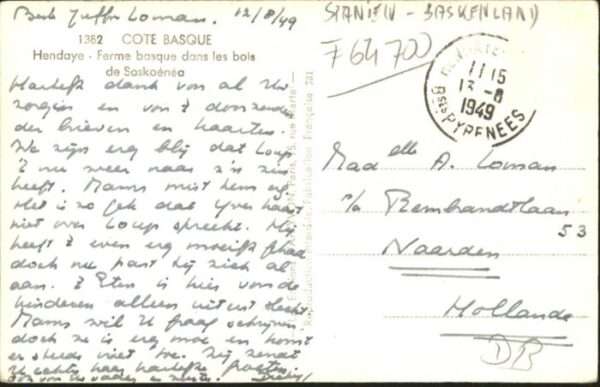 Beste Juffr Loman. 12/8/49
1382 COTE BASQUE
Hendaye - Ferme basque dans les bois
de Saskoénéa
Hartelijk dank voor al Uw
zorgen en voor 't doorzenden
der brieven en kaarten.
We zijn erg blij dat Loup
't nu weer naar z'n zin
heeft. Mams mist hem erg.
Het is zo gek dat Yves haast
niet over Loup spreekt. Hij
heeft 't even erg moeilijk gehad
doch nu past hij zich al
aan. 't Eten is hier voor de
kinderen alleen uiterst slecht
Mams wil U graag schrijven
doch ze is erg moe en komt
er steeds niet toe. Zij zendt
U echter haar hartelijke groeten.
ook van vader
SPANIEN - BASKENLAND
F 64 700
11 15
13 - 8
1949
Bses PYRENEES
Mad elle A. Loman
p/a Rembrandtlaan
53
Naarden
Hollande
DB